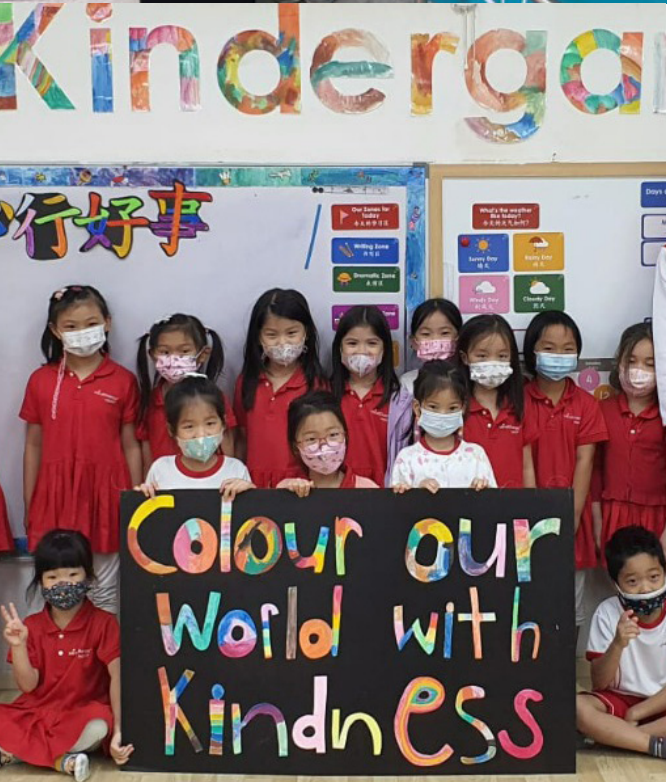 Kinderga
行好事
Our Zones for Today
Writing Zone
Dramatic Zone
Zone
What's the weather like today?
今天的天气如何?
Sunny Day
晴天
Rainy Day
雨天
Windy Day
Cloudy Day
Days
Colour our
World with
Kindness